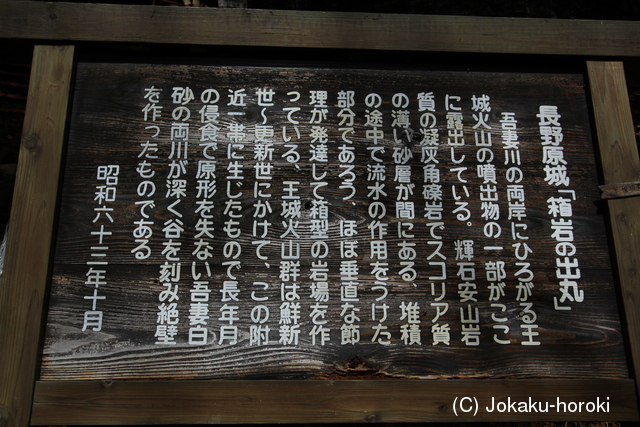 長野原城「箱岩の出丸」
吾妻川の両岸にひろがる王
城火山の噴出物の一部がここ
に露出している。輝石安山岩
質の凝灰角礫岩でスコリア質
の薄い砂層が間にある、堆積
の途中で流水の作用をうけた
部分であろう、ほぼ垂直な節
理が発達して箱型の岩場を作
っている、王城火山群は鮮新
世〜更新世にかけて、この附
近一帯に生じたもので長年月
の侵食で原形を失ない吾妻白
砂の両川が深く谷を刻み絶壁
を作ったものである
昭和六十三年十月
(C) Jokaku-horoki